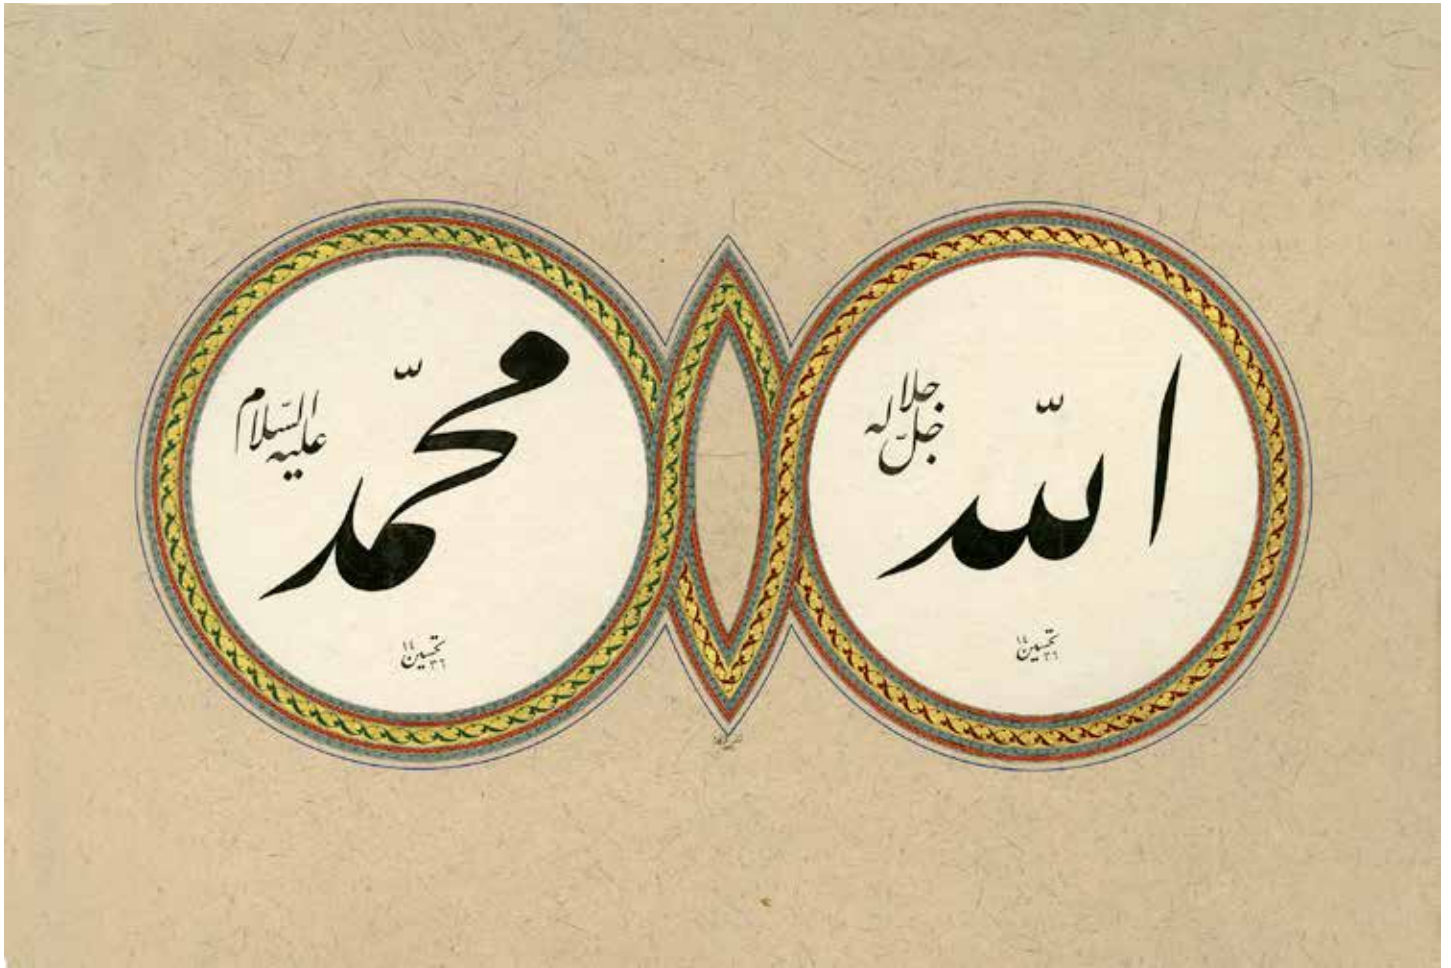 اللّٰه
جلّ جلاله
تحسين ١٤٣٦
محمّد
عليه السّلام
تحسين ١٤٣٦